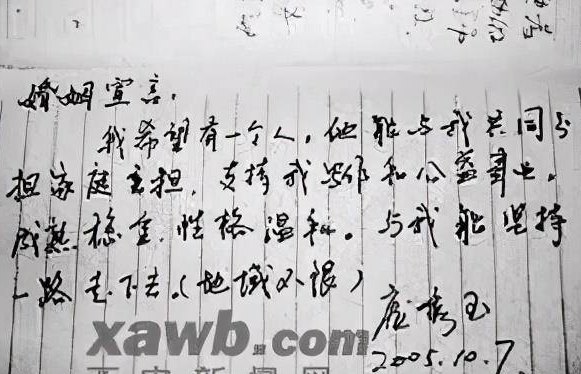 婚姻宣言。
我希望有一个人，他能与我共同分
担家庭重担，支持我写作和公益事业。
成熟稳重，性格温和。与我能坚持
一路走下去。（地域不限）
2005.10.7
xawb.com
西安新闻网